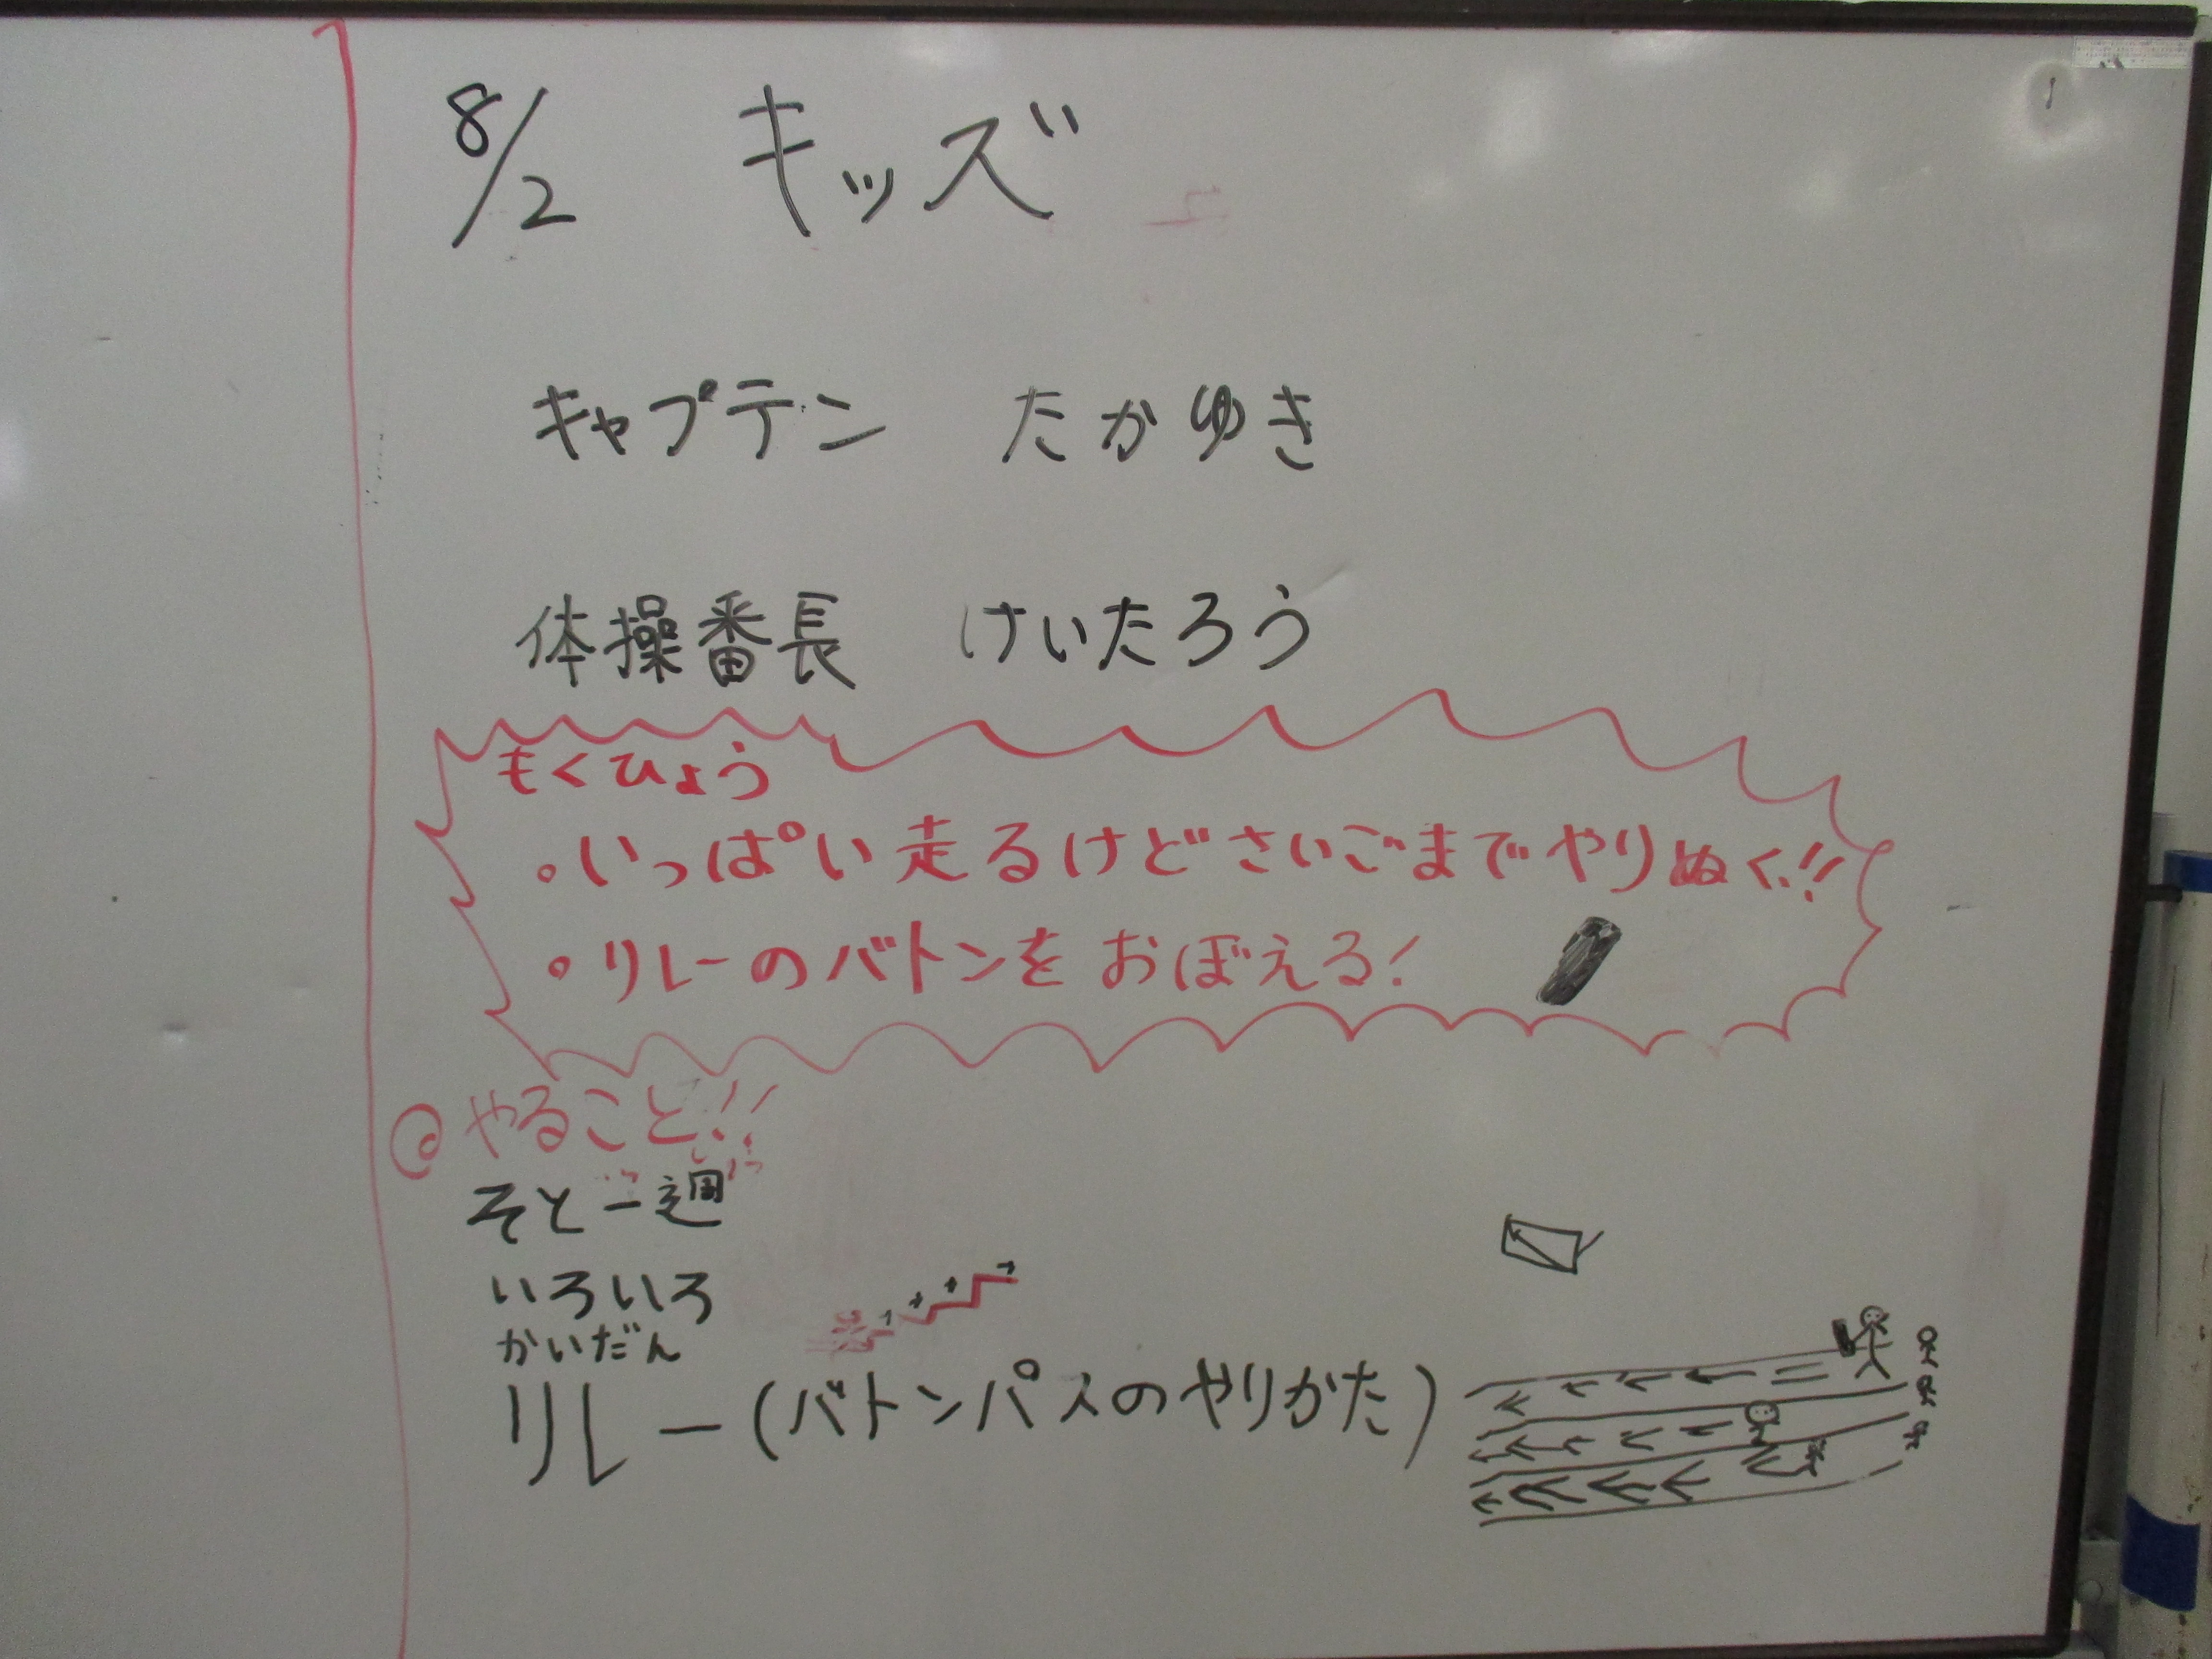 8/2 キッズ
キャプテン たかゆき
体操番長 けいたろう
もくひょう
・いっぱい走るけどさいごまでやりぬく!!
・リレーのバトンをおぼえる!
◎やること!!
そと一週
いろいろ
かいだん
リレー(バトンパスのやりかた)